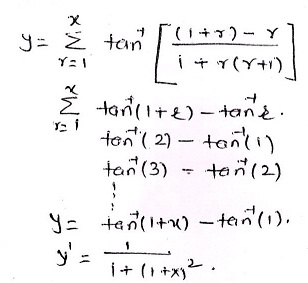 y = Σ_{r=1}^{x} tan⁻¹ [ ((1+r) - r) / (1 + r(r+1)) ]
Σ_{r=1}^{x} tan⁻¹(1+r) - tan⁻¹ r.
tan⁻¹(2) - tan⁻¹(1)
tan⁻¹(3) - tan⁻¹(2)
⋮
y = tan⁻¹(1+x) - tan⁻¹(1).
y' = 1 / (1 + (1+x)²).